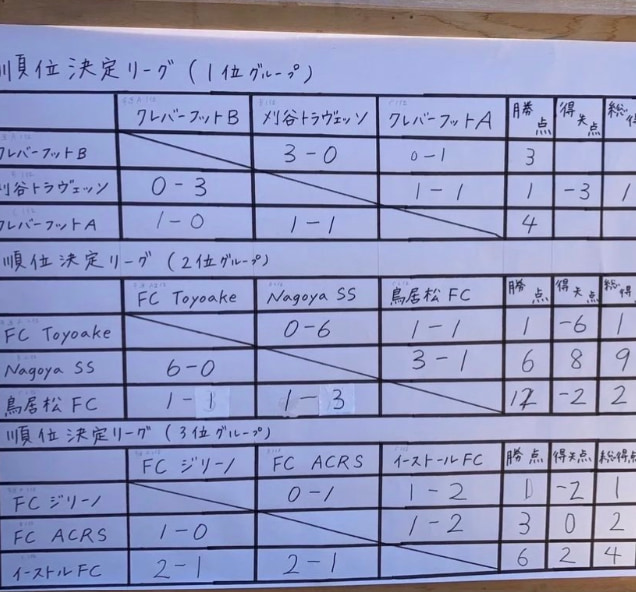 順位決定リーグ (1位グループ)
クレバーフットB 刈谷トラヴェッソ クレバーフットA 勝点 得失点 総得
クレバーフットB 3-0 0-1 3
刈谷トラヴェッソ 0-3 1-1 1 -3 1
クレバーフットA 1-0 1-1 4
順位決定リーグ (2位グループ)
FC Toyoake Nagoya SS 鳥居松FC 勝点 得失点 総得
FC Toyoake 0-6 1-1 1 -6 1
Nagoya SS 6-0 3-1 6 8 9
鳥居松FC 1-1 1-3 -2 2
順位決定リーグ (3位グループ)
FC ジリーノ FC ACRS イーストルFC 勝点 得失点 総得点
FC ジリーノ 0-1 1-2 -2 1
FC ACRS 1-0 1-2 3 0 2
イーストルFC 2-1 2-1 6 2 4